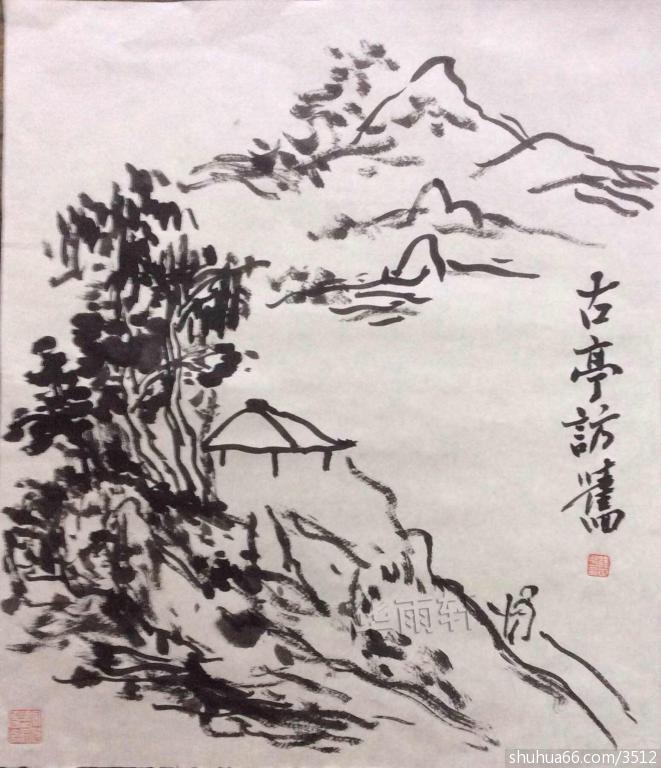 古亭訪舊
华雨轩
shuhua66.com/3512